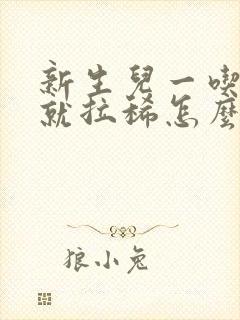 新生兒一喫
就拉稀怎麼
狼小兔